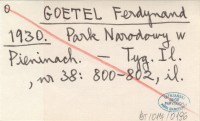 GOETEL Ferdynand
1930. Park Narodowy w
Pieninach. — Tyg. Il.
, nr 38: 800-802, il.